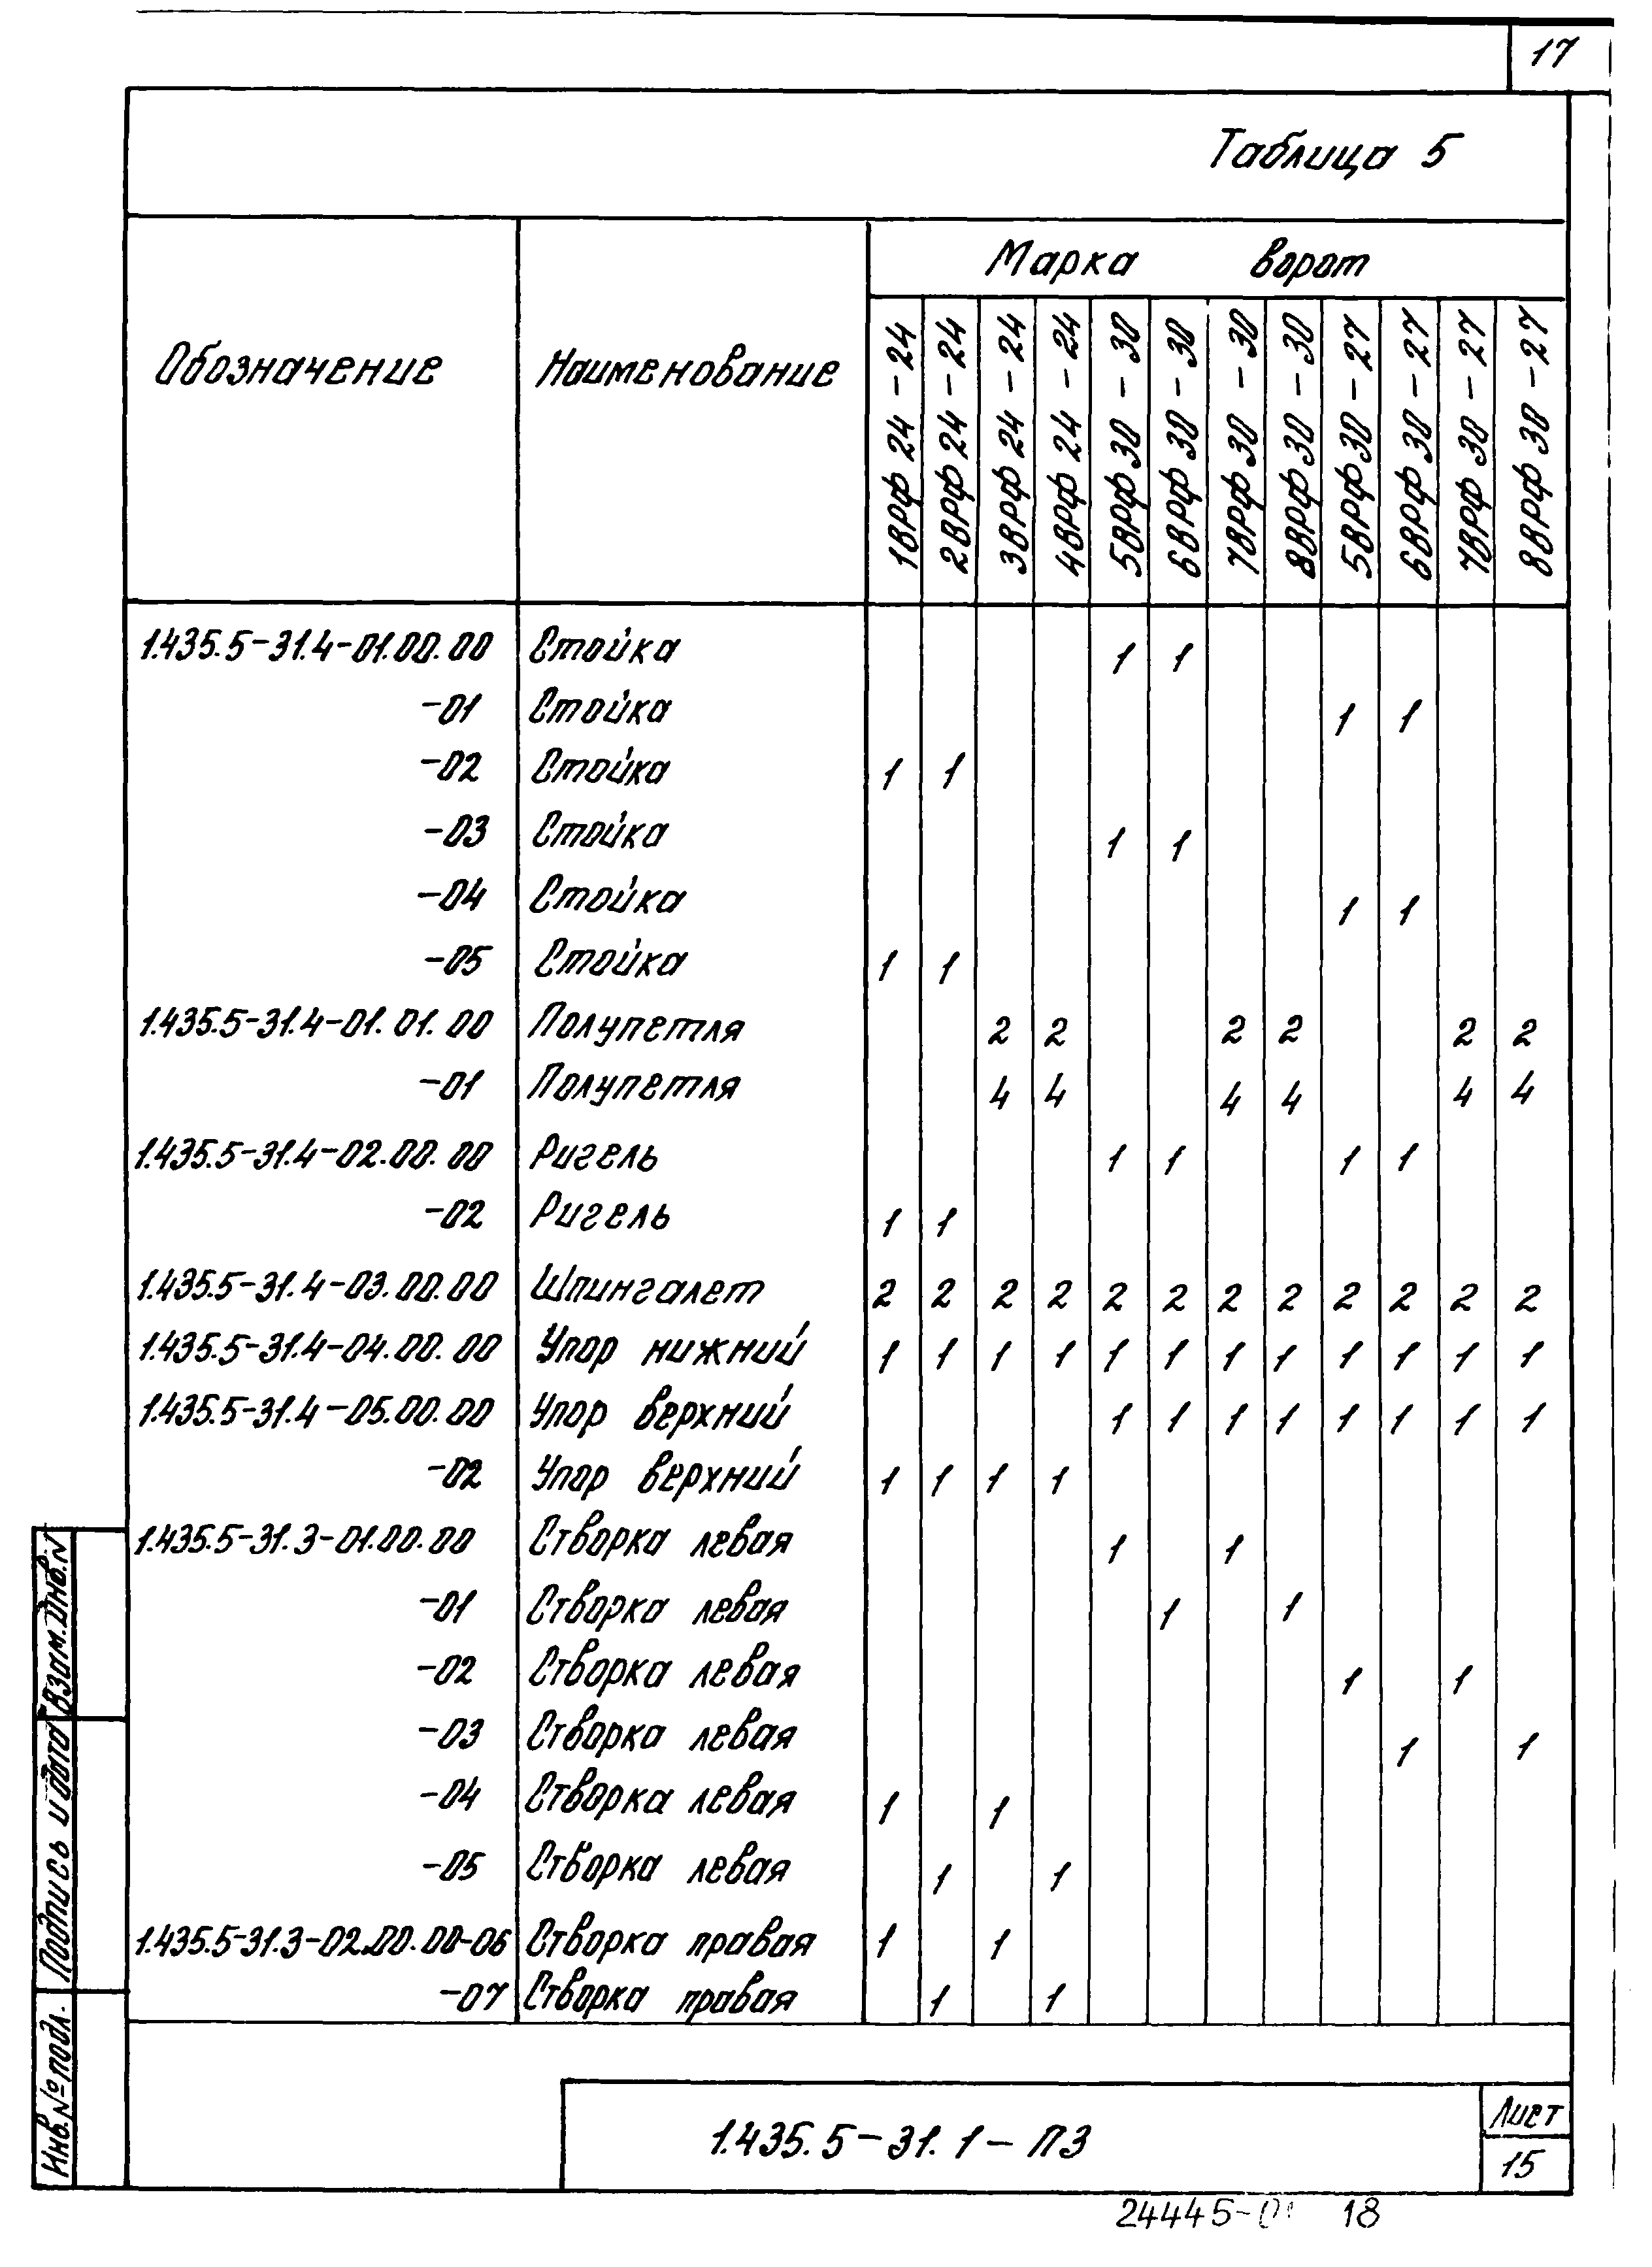 17
Таблица 5
Обозначение Наименование Марка ворот
1ВРФ 24-24 2ВРФ 24-24 3ВРФ 24-24 4ВРФ 24-24 5ВРФ 30-30 6ВРФ 30-30 7ВРФ 30-30 8ВРФ 30-30 5ВРФ 30-27 6ВРФ 30-27 7ВРФ 30-27 8ВРФ 30-27
1.435.5-31.4-01.00.00 Стойка 1 1
-01 Стойка 1 1
-02 Стойка 1 1
-03 Стойка 1 1
-04 Стойка 1 1
-05 Стойка 1 1
1.435.5-31.4-01.01.00 Полупетля 2 2 2 2 2 2
-01 Полупетля 4 4 4 4 4 4
1.435.5-31.4-02.00.00 Ригель 1 1 1 1
-02 Ригель 1 1
1.435.5-31.4-03.00.00 Шпингалет 2 2 2 2 2 2 2 2 2 2 2 2
1.435.5-31.4-04.00.00 Упор нижний 1 1 1 1 1 1 1 1 1 1 1 1
1.435.5-31.4-05.00.00 Упор верхний 1 1 1 1 1 1 1 1
-02 Упор верхний 1 1 1 1
1.435.5-31.3-01.00.00 Створка левая 1 1
-01 Створка левая 1 1
-02 Створка левая 1 1
-03 Створка левая 1 1
-04 Створка левая 1 1
-05 Створка левая 1 1
1.435.5-31.3-02.00.00-06 Створка правая 1 1
-07 Створка правая 1 1
Взам. Инв. N
Подпись и дата
Инв. № подл.
1.435.5-31.1-ПЗ
Лист
15
18